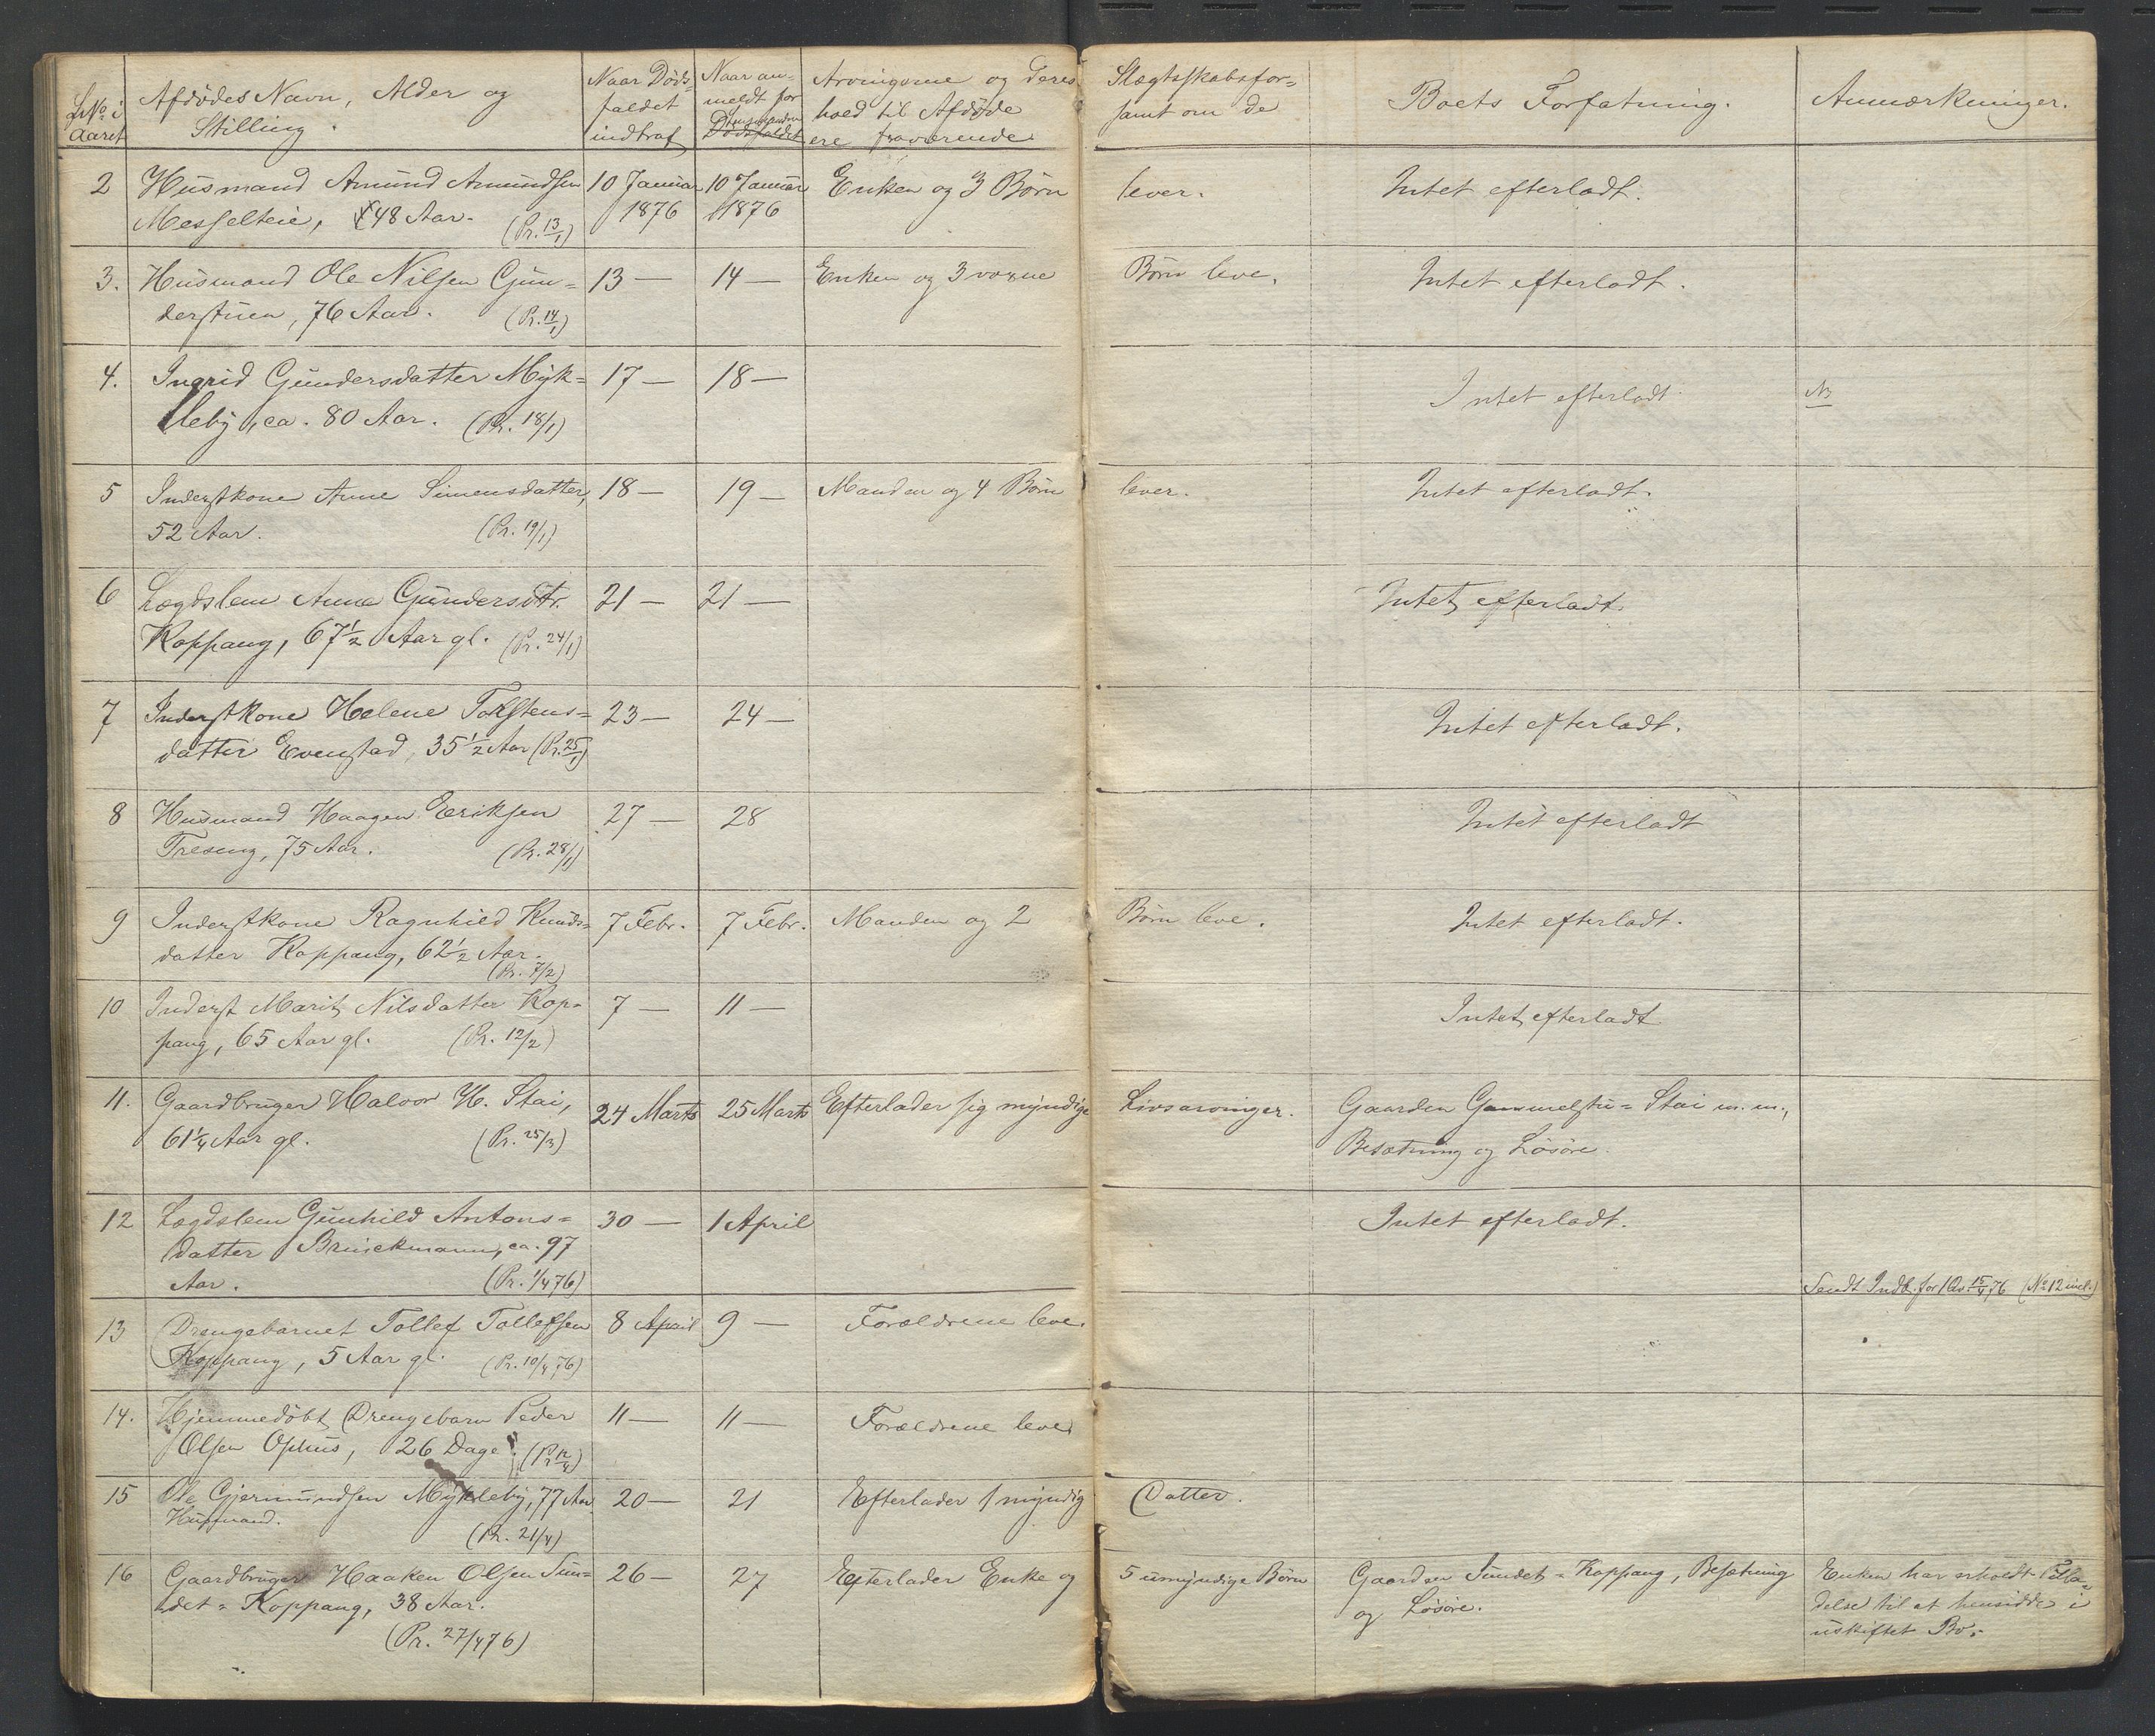 LNo i Aaret
Afdødes Navn, Alder og
Stilling.
Naar Døds-
faldet
indtraf
Naar an-
meldt for
Dødsfaldet
Arvingerne og deres
hold til Afdøde
ere fraværende
Slægtsskabsfor-
samt om de
Boets Forfatning.
Anmærkninger.
2 Husmand Amund Amundsen 10 Januar 10 Januar Enken og 3 Børn lever. Intet efterladt.
Messelteie, 48 Aar. (Pr. 13/1) 1876 1876
3. Husmand Ole Nilsen Gun- 13 — 14 — Enken og 3 voxne Børn leve. Intet efterladt.
derstuen, 76 Aar. (Pr. 14/1)
4. Ingrid Gundersdatter Myk- 17 — 18 — Intet efterladt
leby, ca. 80 Aar. (Pr. 18/1)
5 Inderstkone Anne Simensdatter, 18 — 19 — Manden og 4 Børn lever. Intet efterladt.
52 Aar. (Pr. 19/1)
6 Lægdslem Anne Gundersdtr. 21 — 21 — Intet efterladt.
Koppang, 67 1/2 Aar gl. (Pr. 24/1)
7 Inderstkone Helene Torstens- 23 — 24 — Intet efterladt.
datter Evenstad, 35 1/2 Aar (Pr. 25/1)
8 Husmand Haagen Eriksen 27 — 28 Intet efterladt
Treseng, 75 Aar. (Pr. 28/1)
9 Inderstkone Ragnhild Knuds- 7 Febr. 7 Febr. Manden og 2 Børn leve. Intet efterladt.
datter Koppang, 62 1/2 Aar.
(Pr. 7/2)
10 Inderst Marit Nilsdatter Kop- 7 — 11 — Intet efterladt
pang, 65 Aar gl. (Pr. 12/2)
11. Gaardbruger Halvor H. Stai, 24 Marts 25 Marts Efterlader sig myndige Livsarvinger. Gaarden Gammelstu- Stai m. m.,
61 1/4 Aar gl. (Pr. 25/3) Besætning og Løsøre.
12 Lægdslem Gunhild Antons- 30 — 1 April Intet efterladt.
datter Brinckmann, ca. 97
Aar. (Pr. 1/4 76) Sendt Indb. for 1 Qv. 15/4 76 (No 12 incl.)
13 Drengebarnet Tollef Tollefsen 8 April 9 — Forældrene leve.
Koppang, 5 Aar gl. (Pr. 10/4 76)
14. Hjemmedøbt Drengebarn Peder 11 — 11 — Forældrene leve
Olsen Ophus, 26 Dage. (Pr. 12/4)
15 Ole Gjermundsen Mykleby, 77 Aar 20 — 21 Efterlader 1 myndig Datter.
Husmand. (Pr. 21/4)
16 Gaardbruger Haaken Olsen Sun- 26 — 27 Efterlader Enke og 5 umyndige Børn Gaarden Sundet- Koppang, Besætning Enken har erholdt Tilla-
det- Koppang, 38 Aar. og Løsøre. delse til at hensidde i
(Pr. 27/4 76) uskiftet Bo.